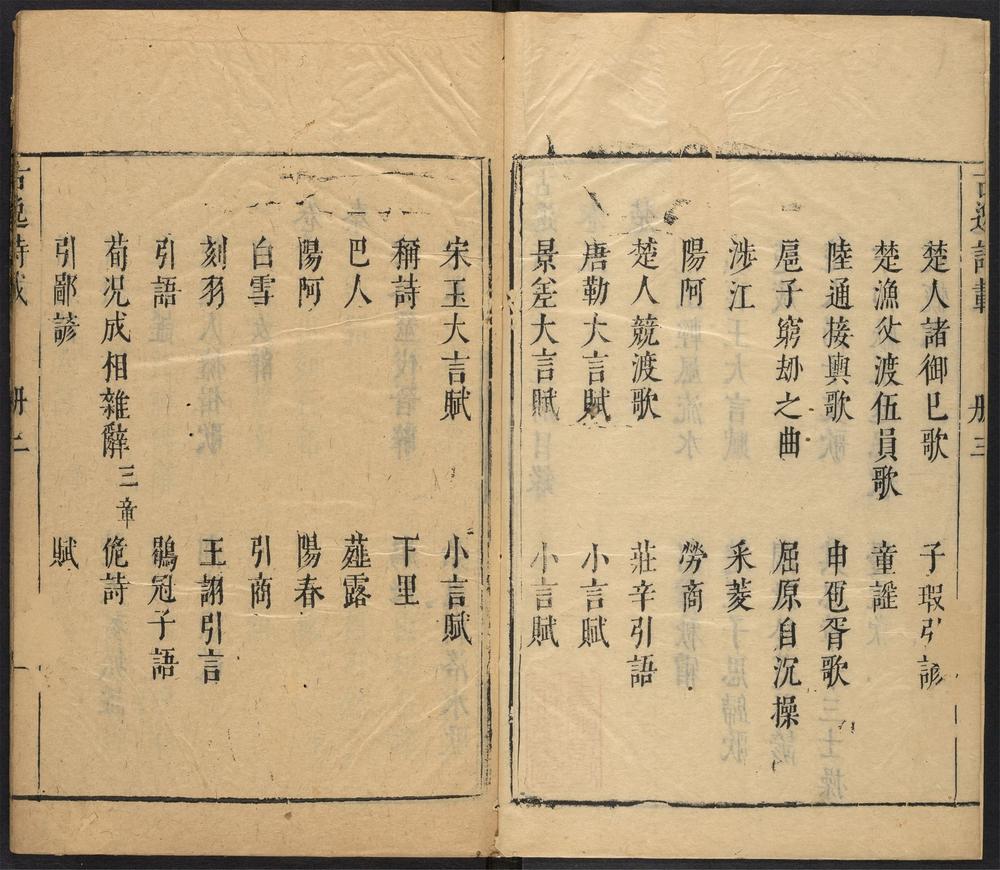 楚人諸御已歌　子瑕引諺
楚漁父渡伍員歌　童謡
陸通接輿歌　申包胥歌
扈子窮劫之曲　屈原自沉操
涉江　采菱
陽阿　勞商
楚人競渡歌　莊辛引語
唐勒大言賦　小言賦
景差大言賦　小言賦
宋玉大言賦　小言賦
稱詩　下里
巴人　薤露
陽阿　陽春
白雪　引商
刻羽　王詡引言
引語　鶡冠子語
荀况成相雜辭三章　佹詩
引鄙諺　賦
古逸詩載　册三